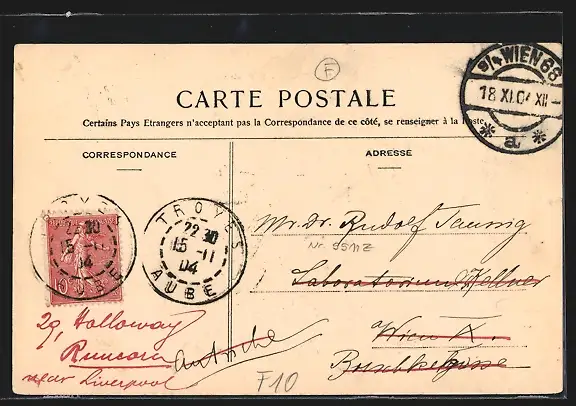 F
9/4 WIEN 68
18.XI.04 XII-
* a *
CARTE POSTALE
Certains Pays Etrangers n'acceptant pas la Correspondance de ce côté, se renseigner à la Poste.
CORRESPONDANCE
ADRESSE
TROYES
22 30
15 -11
04
AUBE
TROYES
22 30
15 -11
04
AUBE
10
Mr. Dr. Rudolf Taussig
Laboratorium Kellner
Wien X.
29, Holloway
Runcorn
near Liverpool
Autriche
F10